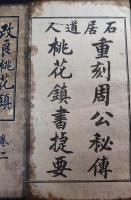 石居道人
重刻周公秘傳
桃花鎮書捷要
改良桃花鎮 卷二